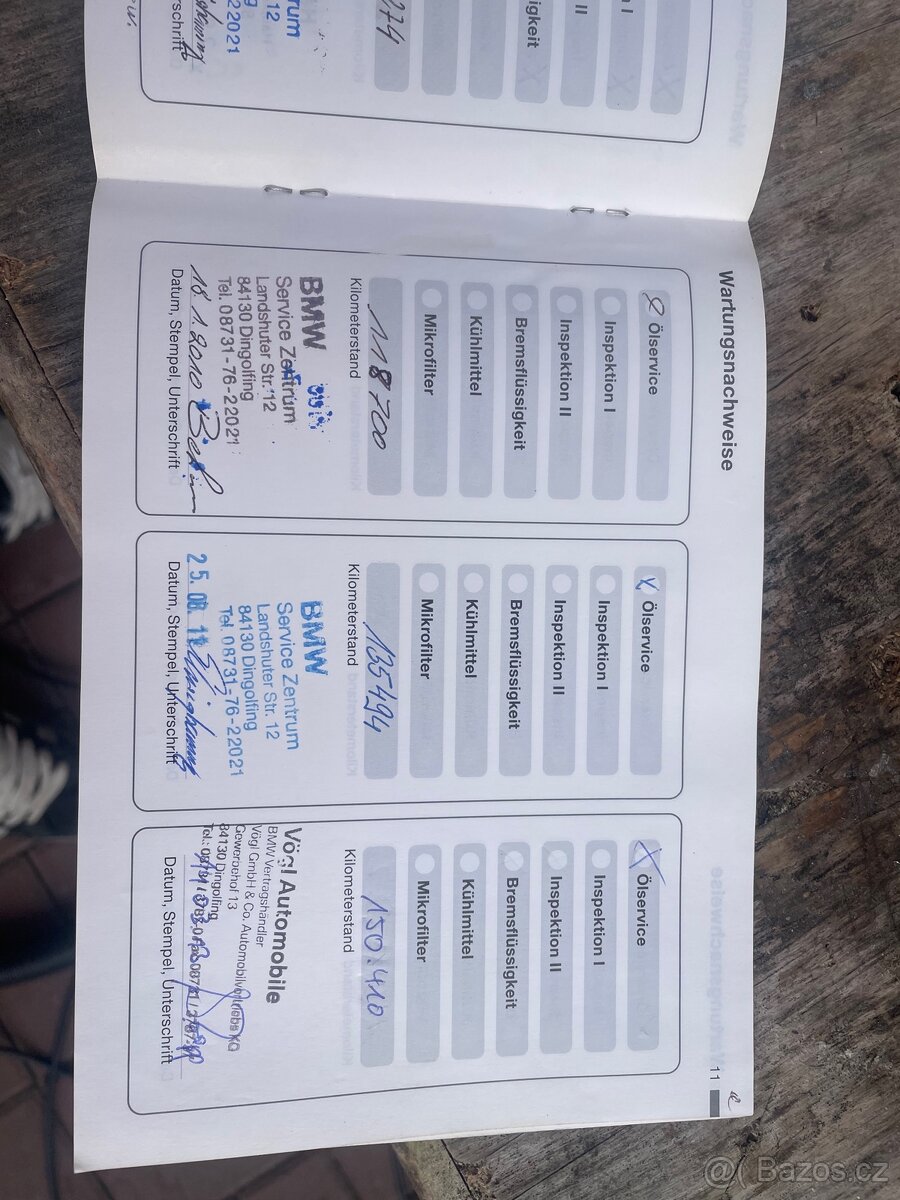 274
Inspektion I
II
igkeit
rum
12
22021
schrift
Wartungsnachweise
Ölservice
Inspektion I
Inspektion II
Bremsflüssigkeit
Kühlmittel
Mikrofilter
118700
Kilometerstand
BMW
Service Zentrum
Landshuter Str. 12
84130 Dingolfing
Tel. 08731-76-22021
18.1.2010
Datum, Stempel, Unterschrift
X Ölservice
Inspektion I
Inspektion II
Bremsflüssigkeit
Kühlmittel
Mikrofilter
135494
Kilometerstand
BMW
Service Zentrum
Landshuter Str. 12
84130 Dingolfing
Tel. 08731-76-22021
25. 08. 11
Datum, Stempel, Unterschrift
X Ölservice
Inspektion I
Inspektion II
Bremsflüssigkeit
Kühlmittel
Mikrofilter
150.410
Kilometerstand
Vögl Automobile
BMW Vertragshändler
Vögl GmbH & Co. Automobilvertriebs KG
Gewerbehof 13
84130 Dingolfing
Datum, Stempel, Unterschrift
11
@( Bazos.cz